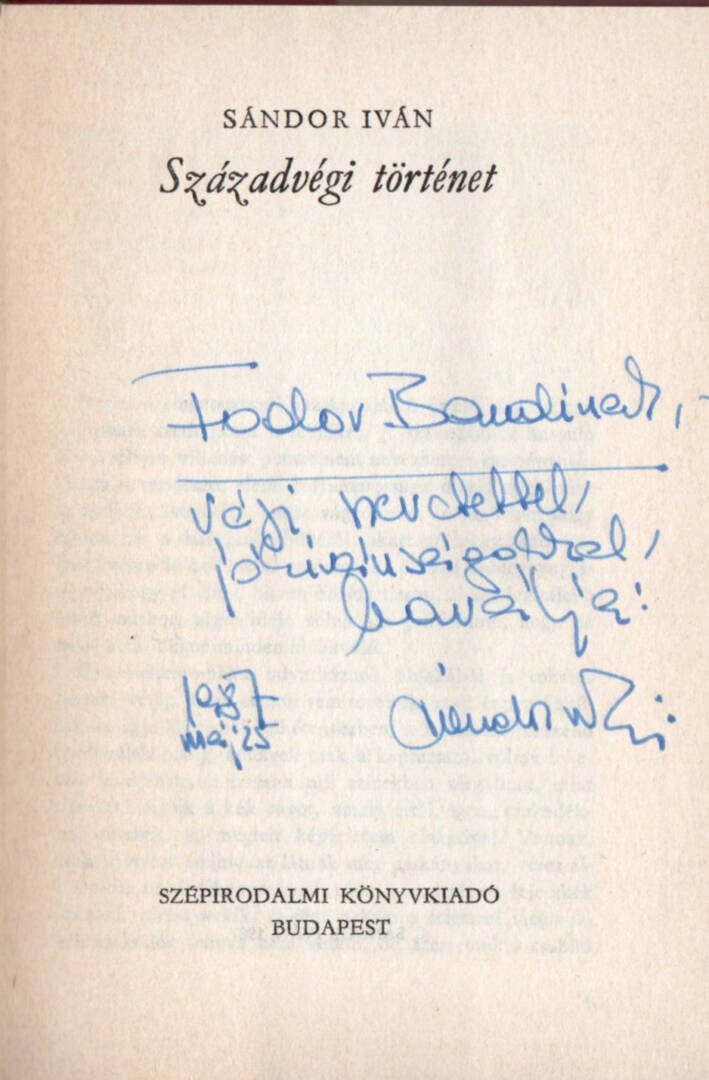 SÁNDOR IVÁN
Századvégi történet
Fodor Bandinak,
régi szeretettel,
jókívánságokkal,
1987
máj. 25
Sándor Iván
SZÉPIRODALMI KÖNYVKIADÓ
BUDAPEST